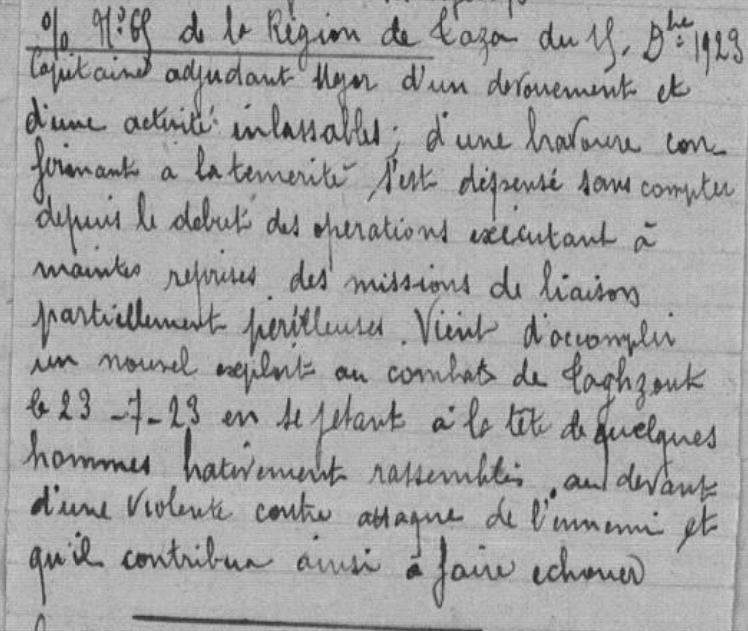 N° 69 de la Région de Taza du 15. Dbre 1923
Capitaine adjudant Major d'un devouement et
d'une activité inlassables; d'une bravoure con-
finant a la temerité s'est dépensé sans compter
depuis le debut des operations executant à
maintes reprises des missions de liaison
partiellement périlleuses. Vient d'accomplir
un nouvel exploit au combat de Taghzout
le 23-7-23 en se jetant à la tête de quelques
hommes hativement rassemblés, au devant
d'une violente contre attaque de l'ennemi et
qu'il contribua ainsi à faire echouer